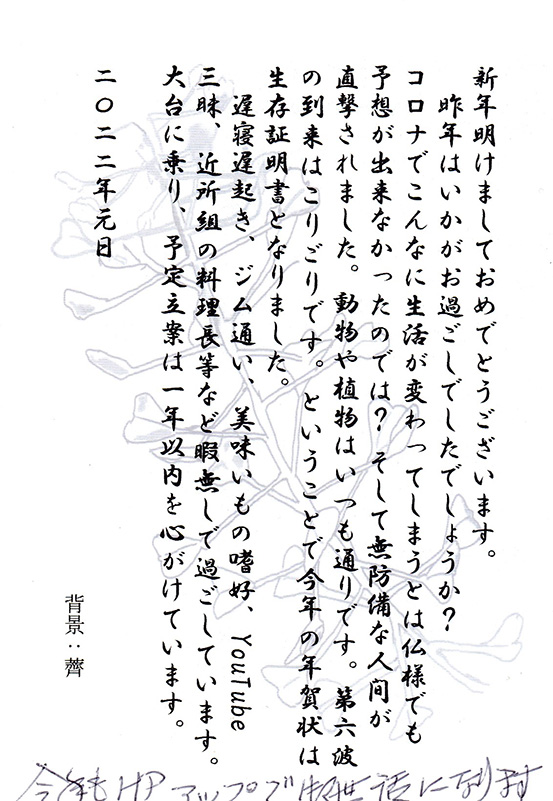 新年明けましておめでとうございます。
昨年はいかがお過ごしでしたでしょうか?
コロナでこんなに生活が変わってしまうとは仏様でも
予想が出来なかったのでは?そして無防備な人間が
直撃されました。動物や植物はいつも通りです。第六波
の到来はこりごりです。ということで今年の年賀状は
生存証明書となりました。
遅寝遅起き、ジム通い、美味いもの嗜好、YouTube
三昧、近所組の料理長等など暇無しで過ごしています。
大台に乗り、予定立案は一年以内を心がけています。
二〇二二年元日
背景:薺
今年もHPアップでお世話になります